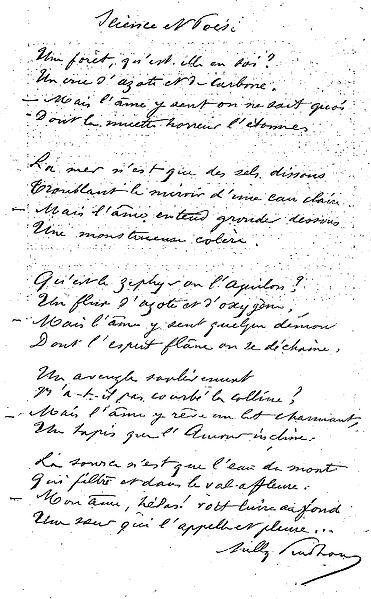 Science et Poésie
Une forêt, qu'est-elle en soi ?
Un amas d'azote et de carbone.
— Mais l'âme y sent on ne sait quoi
Dont la muette horreur l'étonne.
La mer n'est que des sels dissous
Troublant le miroir d'une eau claire.
— Mais l'âme entend gronder dessous
Une monstrueuse colère.
Qu'est le zéphyr ou l'Aquilon ?
Un flux d'azote et d'oxygène,
— Mais l'âme y sent quelque démon
Dont l'esprit flâne ou se déchaîne.
Un aveugle soulèvement
N'a-t-il pas courbé la colline ?
— Mais l'âme y rêve un lit charmant,
Un tapis que l'Amour incline.
La source n'est que l'eau du mont
Qui filtre et dans le val affleure.
— Mon âme, hélas! voit luire au fond
Une sœur qui l'appelle et pleure...
Sully Prudhomme